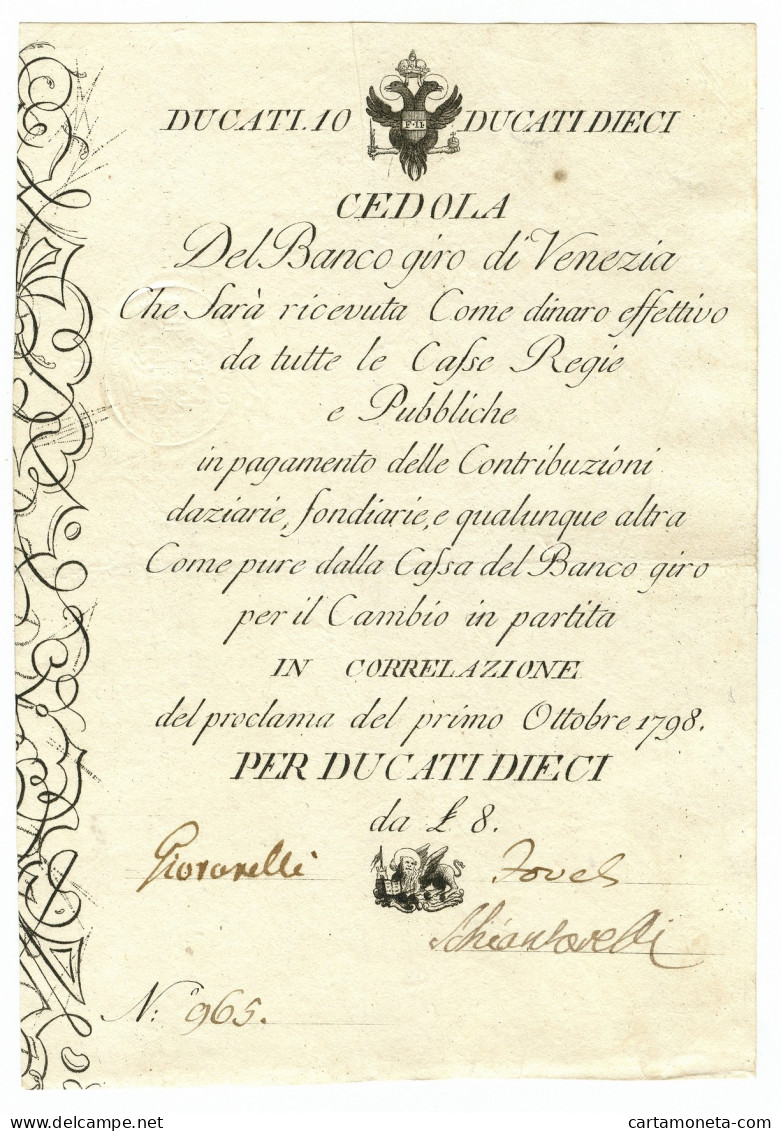 DUCATI.10 DUCATI DIECI
F·II·
CEDOLA
Del Banco giro di Venezia
Che Sarà ricevuta Come dinaro effettivo
da tutte le Caſse Regie
e Pubbliche
in pagamento delle Contribuzioni
daziarie, fondiarie, e qualunque altra
Come pure dalla Caſsa del Banco giro
per il Cambio in partita
IN CORRELAZIONE
del proclama del primo Ottobre 1798.
PER DUCATI DIECI
da £ 8.
N:º 965.
cartamoneta-com